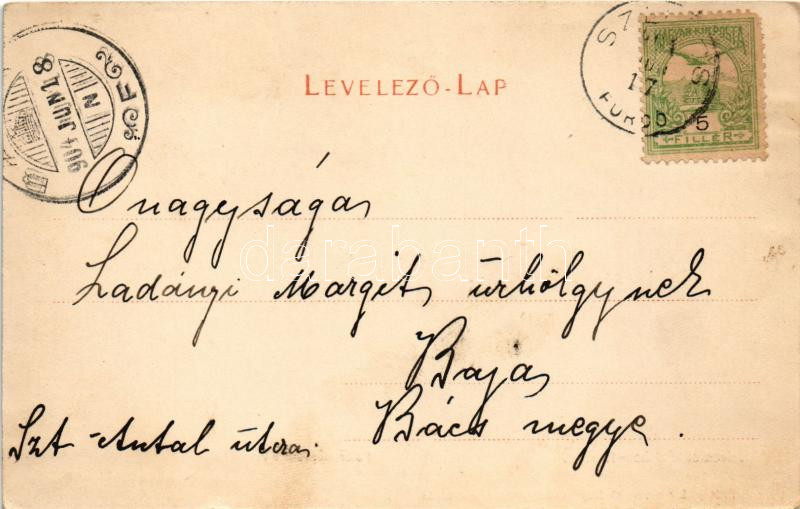 LEVELEZŐ-LAP
MAGYAR KIR. POSTA
5
FILLÉR
FÜRED
17
904 JUN 18
N
Ő nagysága
Ladányi Margit úrhölgynek
Baja
Bács megye.
Szt Antal utca.
darabanth